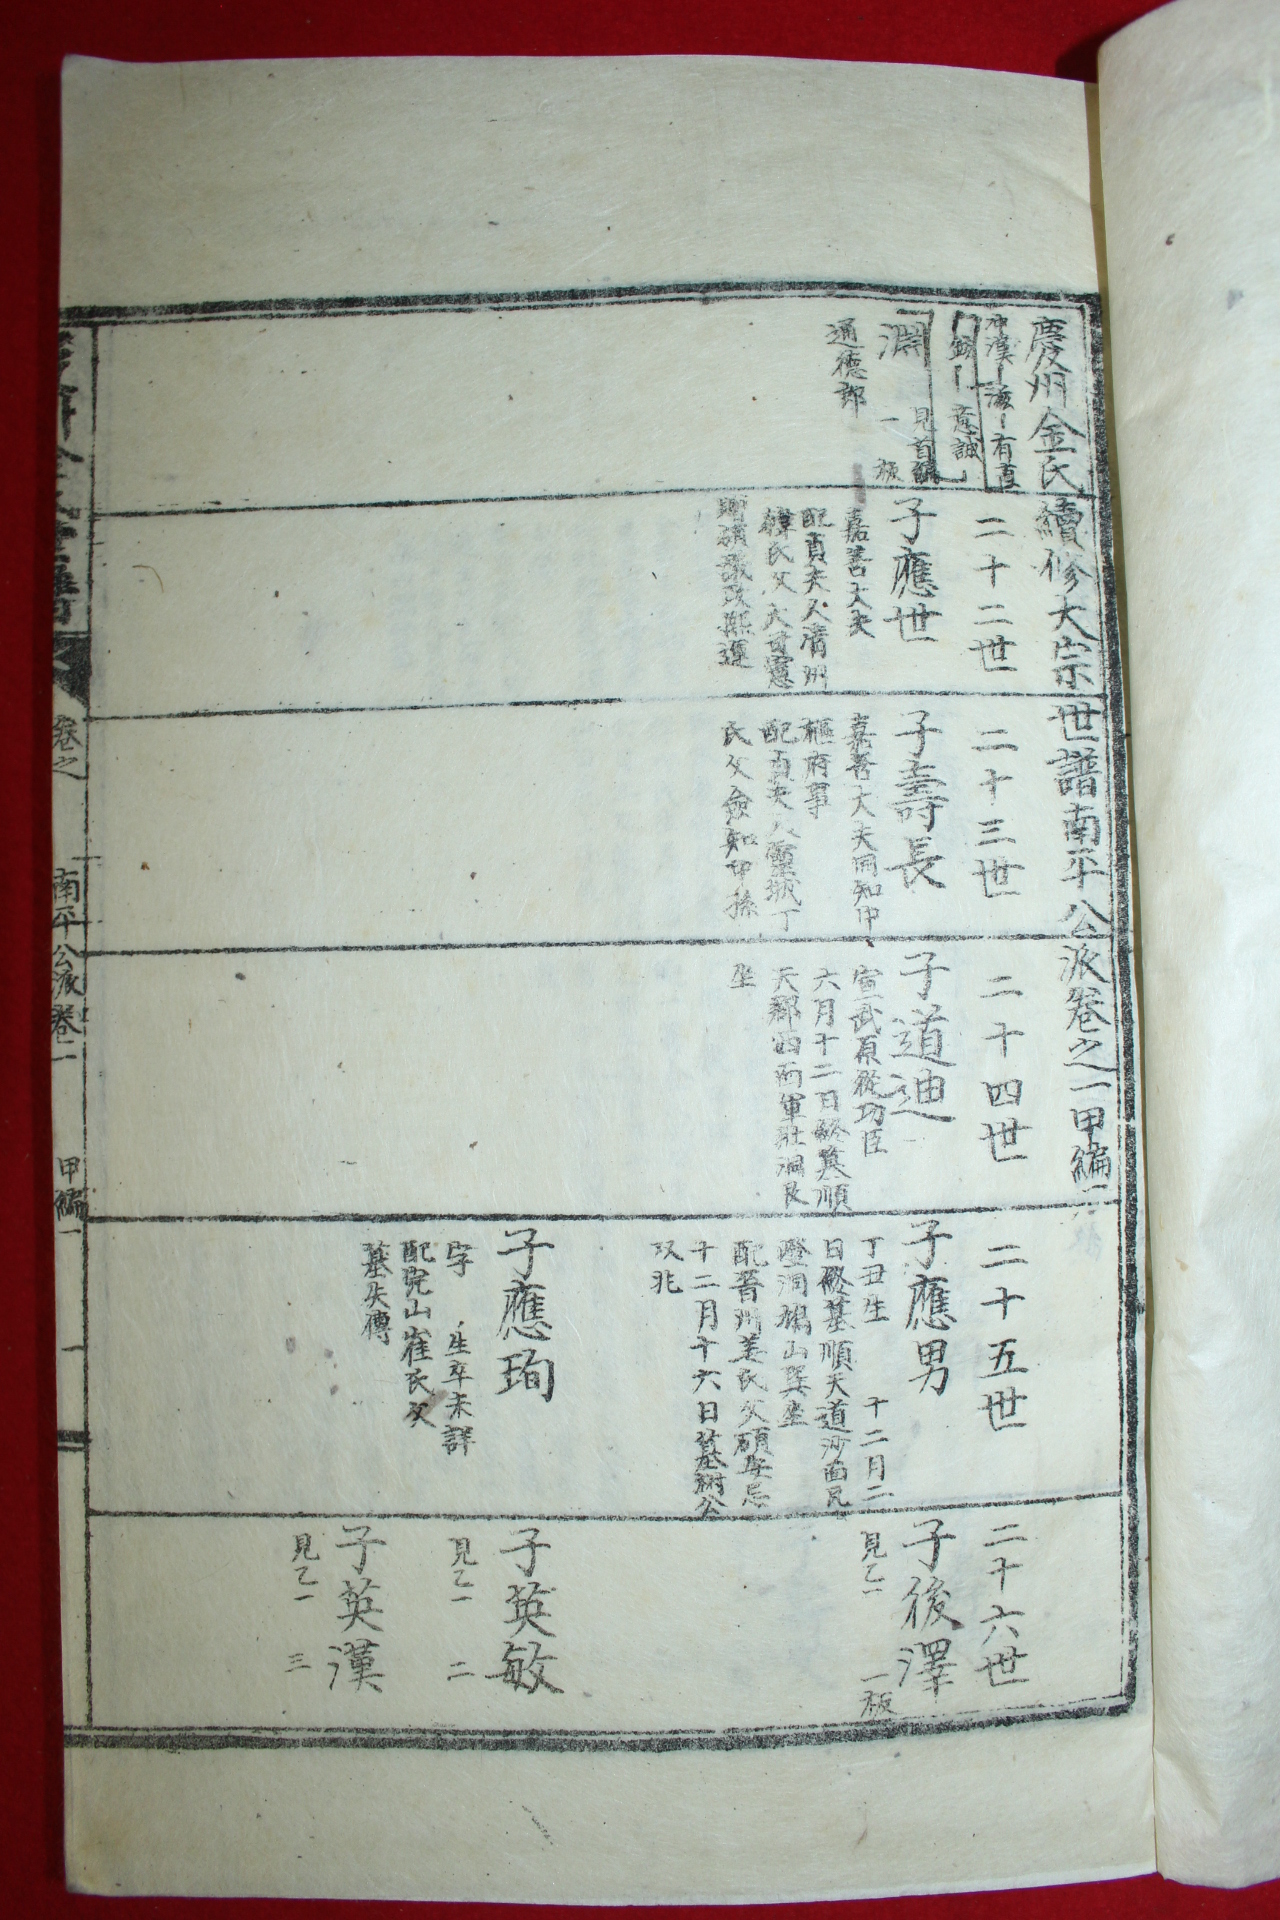 慶州金氏續修大宗世譜南平公派卷之一甲編一
冲漢 ー 滋 ー 有直
ー 意誠
淵
見首編
一板
通德郎
二十二世
子應世
嘉善大夫
配貞夫人淸州
韓氏父大司憲
贈領議政
二十三世
子壽長
嘉善大夫同知中
樞府事
配貞夫人靈城丁
氏父僉知中孫
二十四世
子道迪
宣武原從功臣
六月十二日終墓順
天郡西面軍壯洞艮
坐
二十五世
子應男
丁丑生 十二月二
日終墓順天道沙面
洞鳩山巽坐
配晉州姜氏父碩 忌
十二月十六日墓祔公
双兆
子應珣
字 生卒未詳
配完山崔氏父
墓失傳
二十六世
子後澤
見乙一 一板
子英敏
見乙一 二
子英漢
見乙一 三
卷之 南平公派卷一 甲編一 一